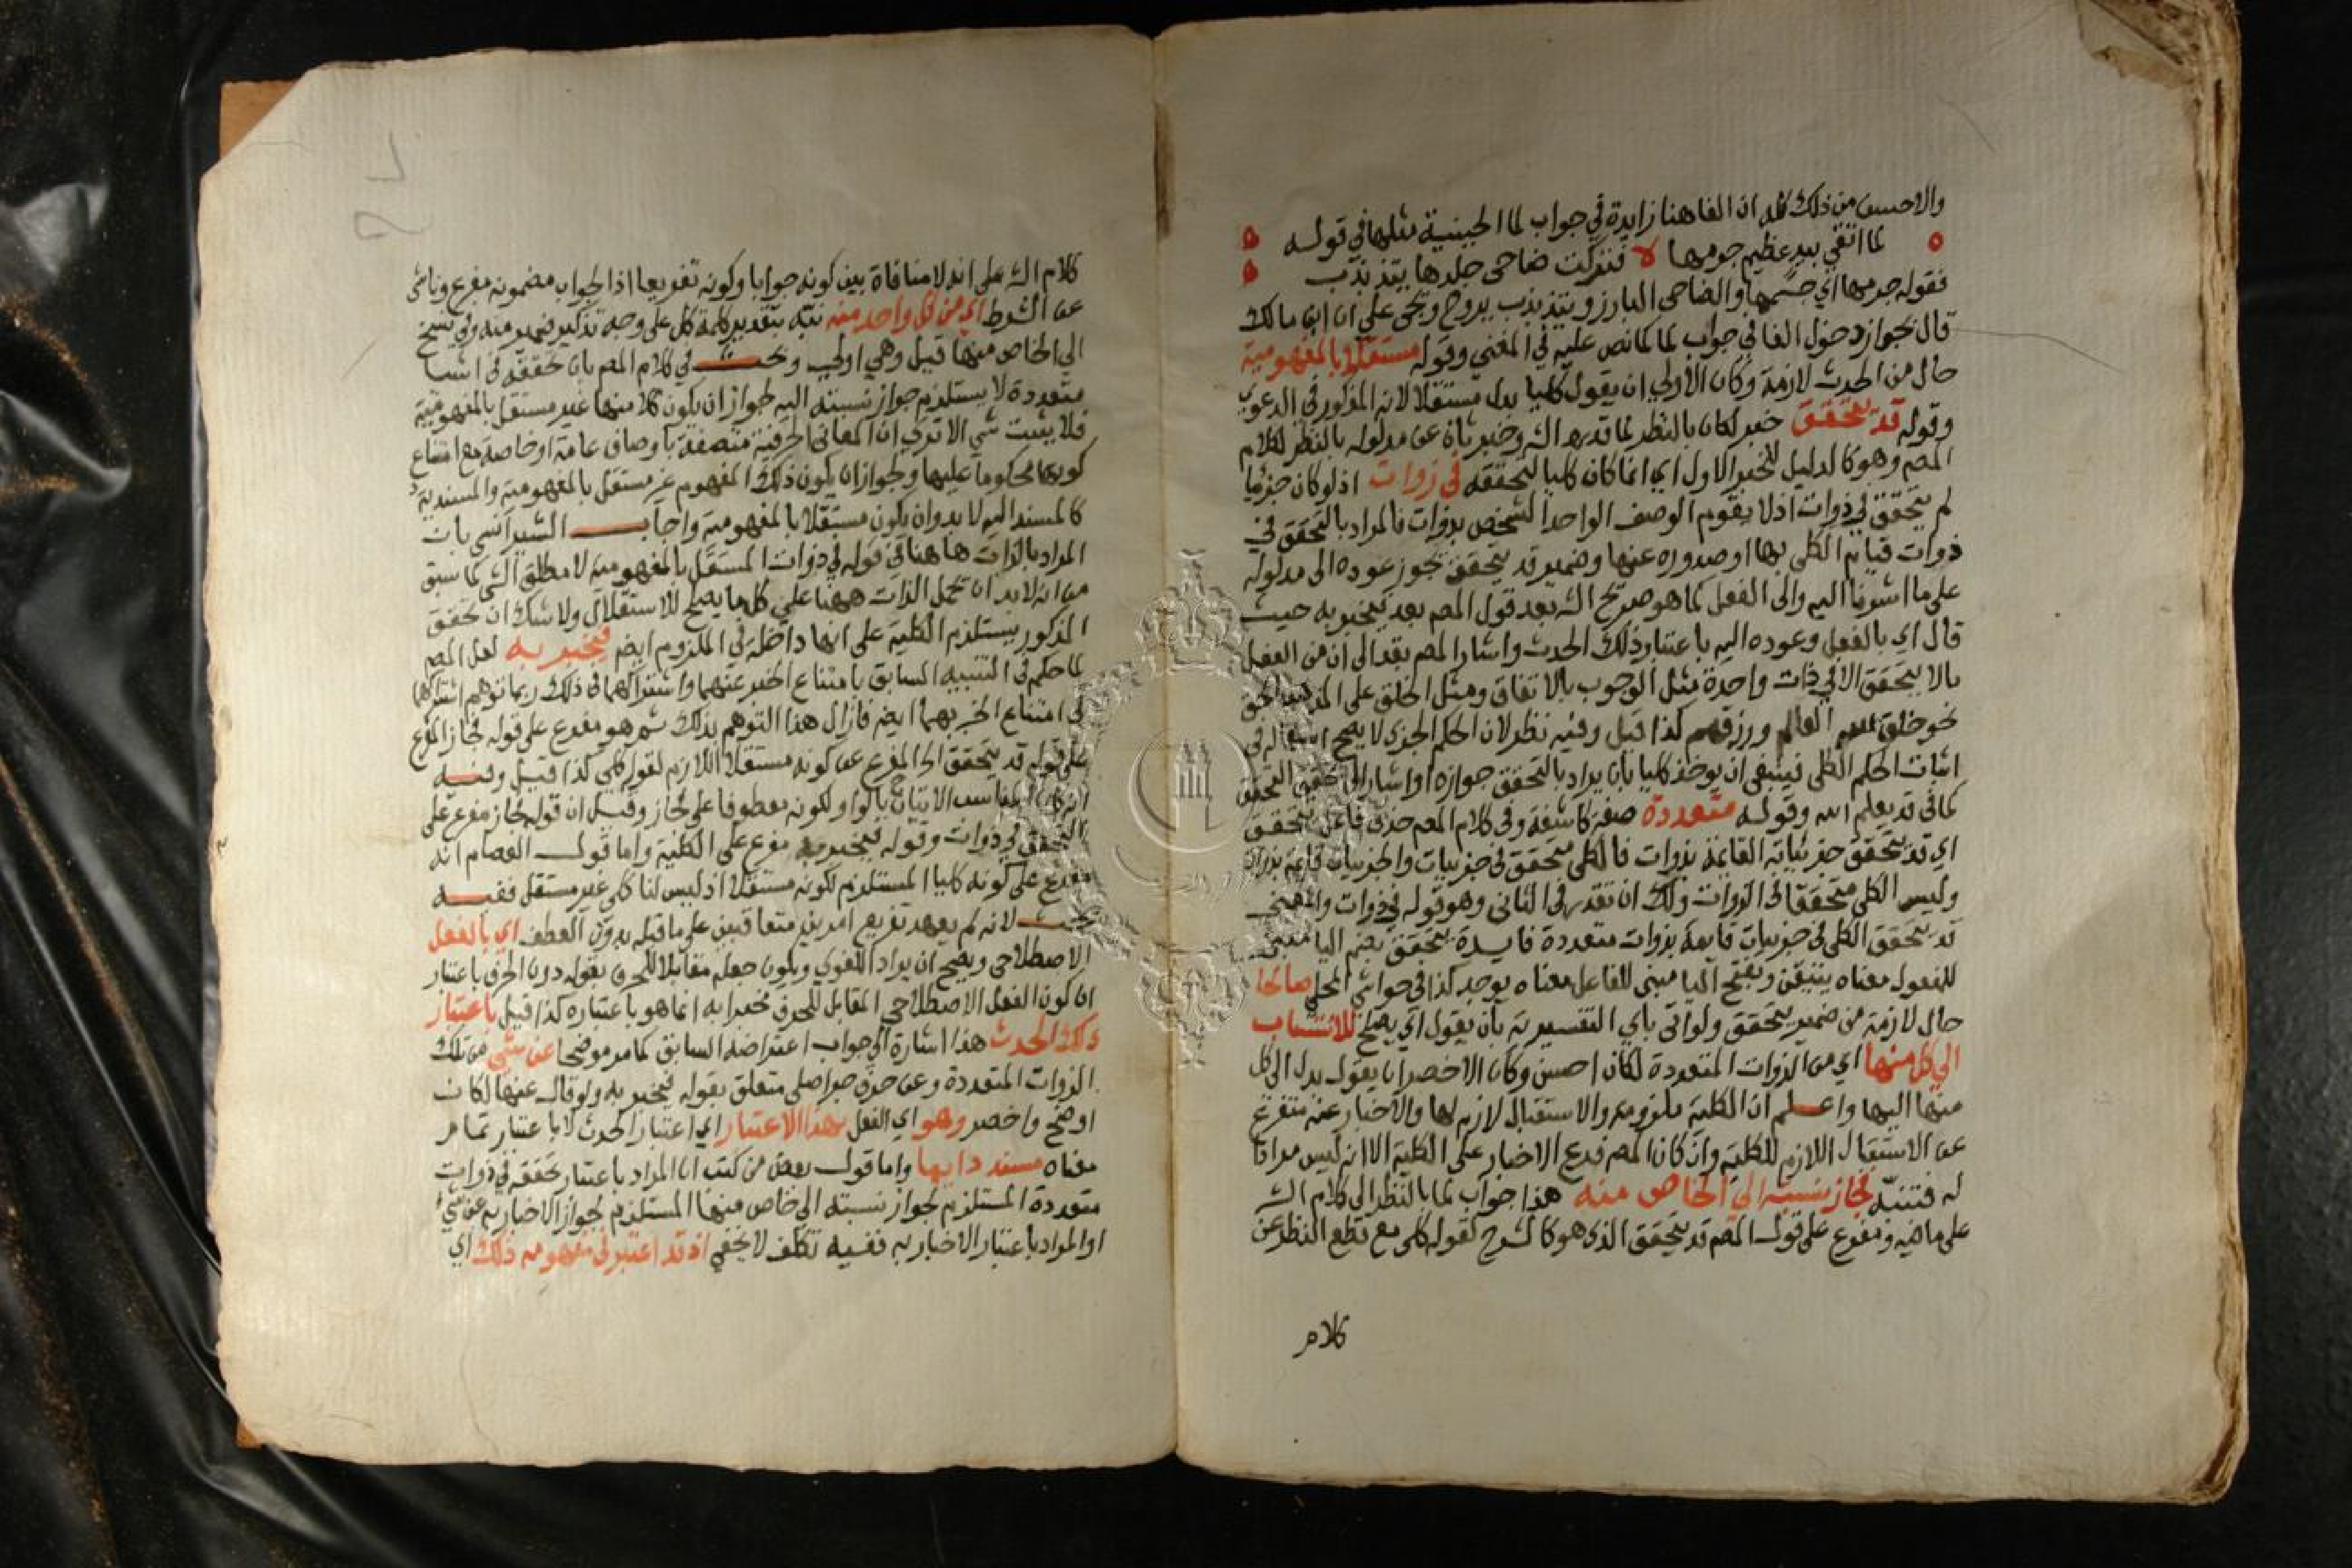 والاحسن من ذلك كله ان الفا هنا زايدة في جواب لما الحينية مثلها في قوله
لما اتقي بيد عظيم جرمها فتركت ضاحى جلدها يتذبذب
فقوله جرمها اي جسمها والضاحى البارز ويتذبذب يروح ويجى على ان ابن مالك
قال بجواز دخول الفا في جواب لما كما نص عليه في المغنى وقوله مستقلا بالمفهومية
حال من الحدث لازمة وكان الاولى ان يقول كليا بدل مستقلا لانه المذكور في الدعوى
وقوله قد يتحقق خبر لكان بالنظر لما قدره الش وخبر ثان عن مدلوله بالنظر لكلام
المص وهو كالدليل للخبر الاول اي انما كان كليا لتحققه في ذوات اذ لو كان جزئيا
لم يتحقق في ذوات اذ لا يقوم الوصف الواحد الشخص بذوات فالمراد بالتحقق في
ذوات قيام الكلى بها او صدوره عنها وضمير قد يتحقق يجوز عوده الى مدلوله
على ما اشرنا اليه والى الفعل كما هو صريح الش بعد قول المص بعد يخبر به حيث
قال اي بالفعل وعوده اليه باعتبار ذلك الحدث واشار المص بقد الى ان من الفعل
ما لا يتحقق الا في ذات واحدة مثل الوجوب بالاتفاق ومثل الخلق على المذهب الحق
نحو خلق الله العالم ورزقهم كذا قيل وفيه نظر لان الحكم الجزى لا يصح في
اثبات الحكم الكلى فينبغى ان يوخذ كليا بان يراد بالتحقق جوازه او اشار الى التحقق
كما في قد يعلم الله وقوله متعددة صفة كاشفة وفى كلام المص حذف فاعل يتحقق
اي قد يتحقق جزئياته القايمة بذوات فالكلى متحقق في جزييات والجزييات قايمة بذوات
وليس الكلى متحققا في الذوات ولك ان تقدر في الثانى وهو قوله في ذوات والمعنى
قد يتحقق الكلى في جزييات قايمة بذوات متعددة فايدة يتحقق بضم اليا مبنى
للمفعول معناه يتيقن وبفتح اليا مبنى للفاعل معناه يوجد كذا في حواشي المحلى صالحا
حال لازمة من ضمير يتحقق ولو اتى باي التفسيرية بان يقول اي يصلح للانتساب
الي كل منها اي من الذوات المتعددة لكان احسن وكان الاخصر ان يقول بدل الى كل
منها اليها واعلم ان الكلية ملزومة والاستقبال لازم لها والاخبار عنه متفرع
عن الاستقبال اللازم للكلية وان كان المص فرع الاخبار على الكلية الا انه ليس مرادا
له فتنبه فجاز نسبته الى الخاص منه هذا جواب لما بالنظر الى كلام الش
على ما فيه ومفرع على قول المص قد يتحقق الذى هو كالشرح لقوله كلى مع قطع النظر عن
كلام
كلام الش على انه لا منافاة بين كونه جوابا وكونه تفريعا اذ الجواب مضمونه مفرع وناشى
عن الشرط اي من كل واحد منه نبه بتقدير كلمة كل على وجه تذكير ضمير منه وفي نسخ
الي الخاص منها قيل وهي اولى وبحث في كلام المص بان تحققه في اشيا
متعددة لا يستلزم جواز نسبته اليه لجواز ان يكون كلا منها غير مستقل بالمفهومية
فلا يثبت شى الا ترى ان المعانى الحرفية متصفة باوصاف عامة او خاصة مع امتناع
كونها محكوما عليها ولجواز ان يكون ذلك المفهوم غير مستقل بالمفهومية والمسند به
كالمسند اليه لا بد وان يكون مستقلا بالمفهومية واجاب الشيرانسى بان
المراد بالذات ها هنا في قوله في ذوات المستقل بالمفهومية لا مطلق الشى كما سبق
من انه لا بد ان تحمل الذات ههنا علي كل ما يصلح للاستقلال ولا شك ان تحقق
المذكور يستلزم الكلية على انها داخلة في الملزوم ايض فيخبر به لعل المص
لما حكم في التنبيه السابق بامتناع الخبر عنهما واشتراكهما في ذلك ربما توهم اشتراكهما
في امتناع الخبر بهما ايض فازال هذا التوهم بذلك ثم هو مفرع على قوله فجاز المفرع
على قوله قد يتحقق الخ المفرع عن كونه مستقلا اللازم لقوله كلى كذا قيل وفيه
انه كان المناسب الاتيان بالواو لكونه معطوفا على فجاز وقيل ان قوله فجاز مفرع على
التحقق في ذوات وقوله فيخبر به مفرع على الكلية واما قول العصام انه
مفرع على كونه كليا المستلزم لكونه مستقلا اذ ليس لنا كلى غير مستقل ففيه
بحث لانه لم يعهد تفريع امرين متعاقبين على ما قبله بدون العطف اي بالفعل
الاصطلاحى ويصح ان يراد اللغوي ويكون جعله مقابلا للحرف بقوله دون الحرف باعتبار
ان كون الفعل الاصطلاحى المقابل للحرف مخبرا به انما هو باعتباره كذا قيل باعتبار
ذلك الحدث هذا اشارة الى جواب اعتراضه السابق كما مر موضحا عن شي من تلك
الذوات المتعددة وعن حرف جر اصلى متعلق بقوله يخبر به ولو قال عنها لكان
اوضح واخصر وهو اي الفعل بهذا الاعتبار اي اعتبار الحدث لا باعتبار تمام
معناه مسند دايما واما قول بعض من كتب ان المراد باعتبار تحققه في ذوات
متعددة المستلزم لجواز نسبته الى خاص منها المستلزم لجواز الاخبار به عن شي
او المراد باعتبار الاخبار به ففيه تكلف لا يخفي اذ قد اعتبر في مفهومه ذلك اي